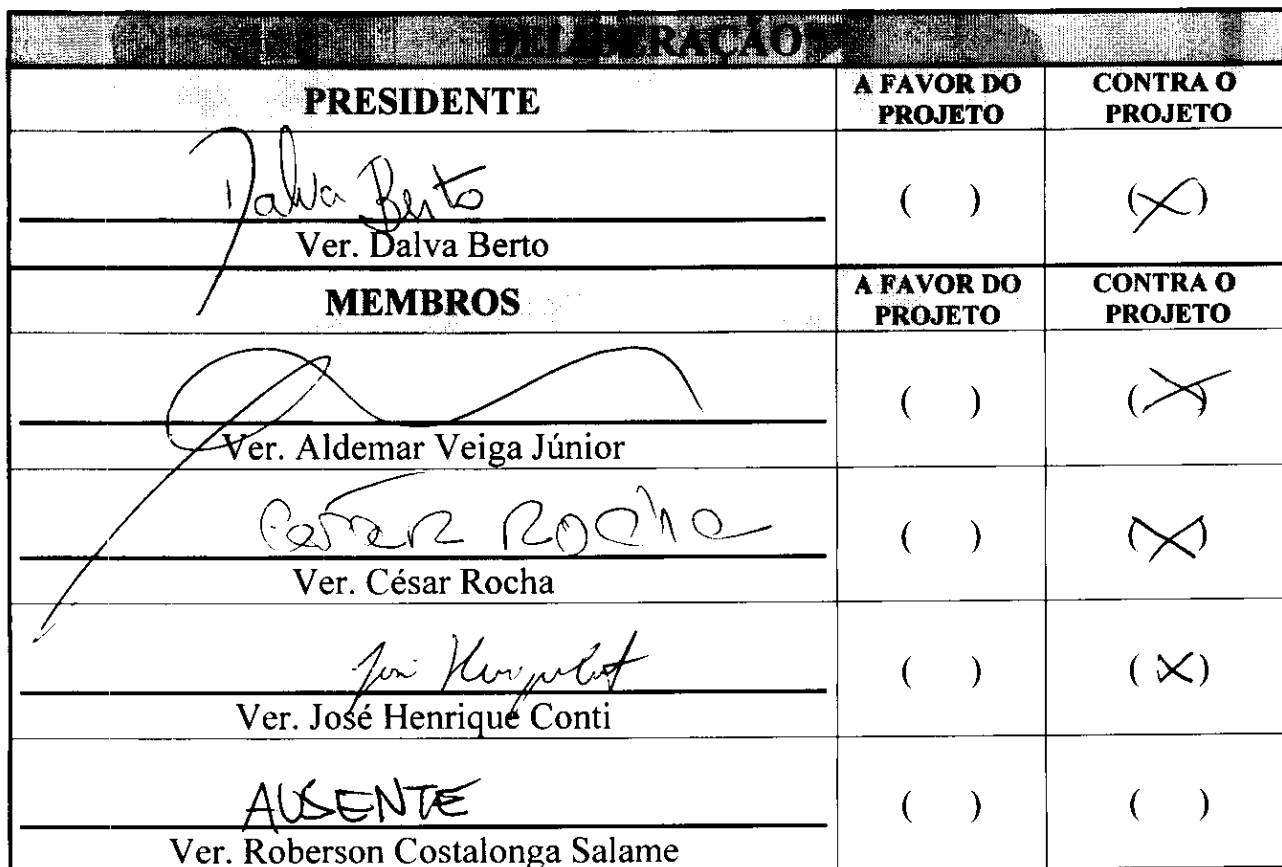 DELIBERAÇÃO
PRESIDENTE A FAVOR DO PROJETO CONTRA O PROJETO
Dalva Berto
Ver. Dalva Berto ( ) (X)
MEMBROS A FAVOR DO PROJETO CONTRA O PROJETO
Ver. Aldemar Veiga Júnior ( ) (X)
César Rocha
Ver. César Rocha ( ) (X)
Ver. José Henrique Conti ( ) (X)
AUSENTE
Ver. Roberson Costalonga Salame ( ) ( )